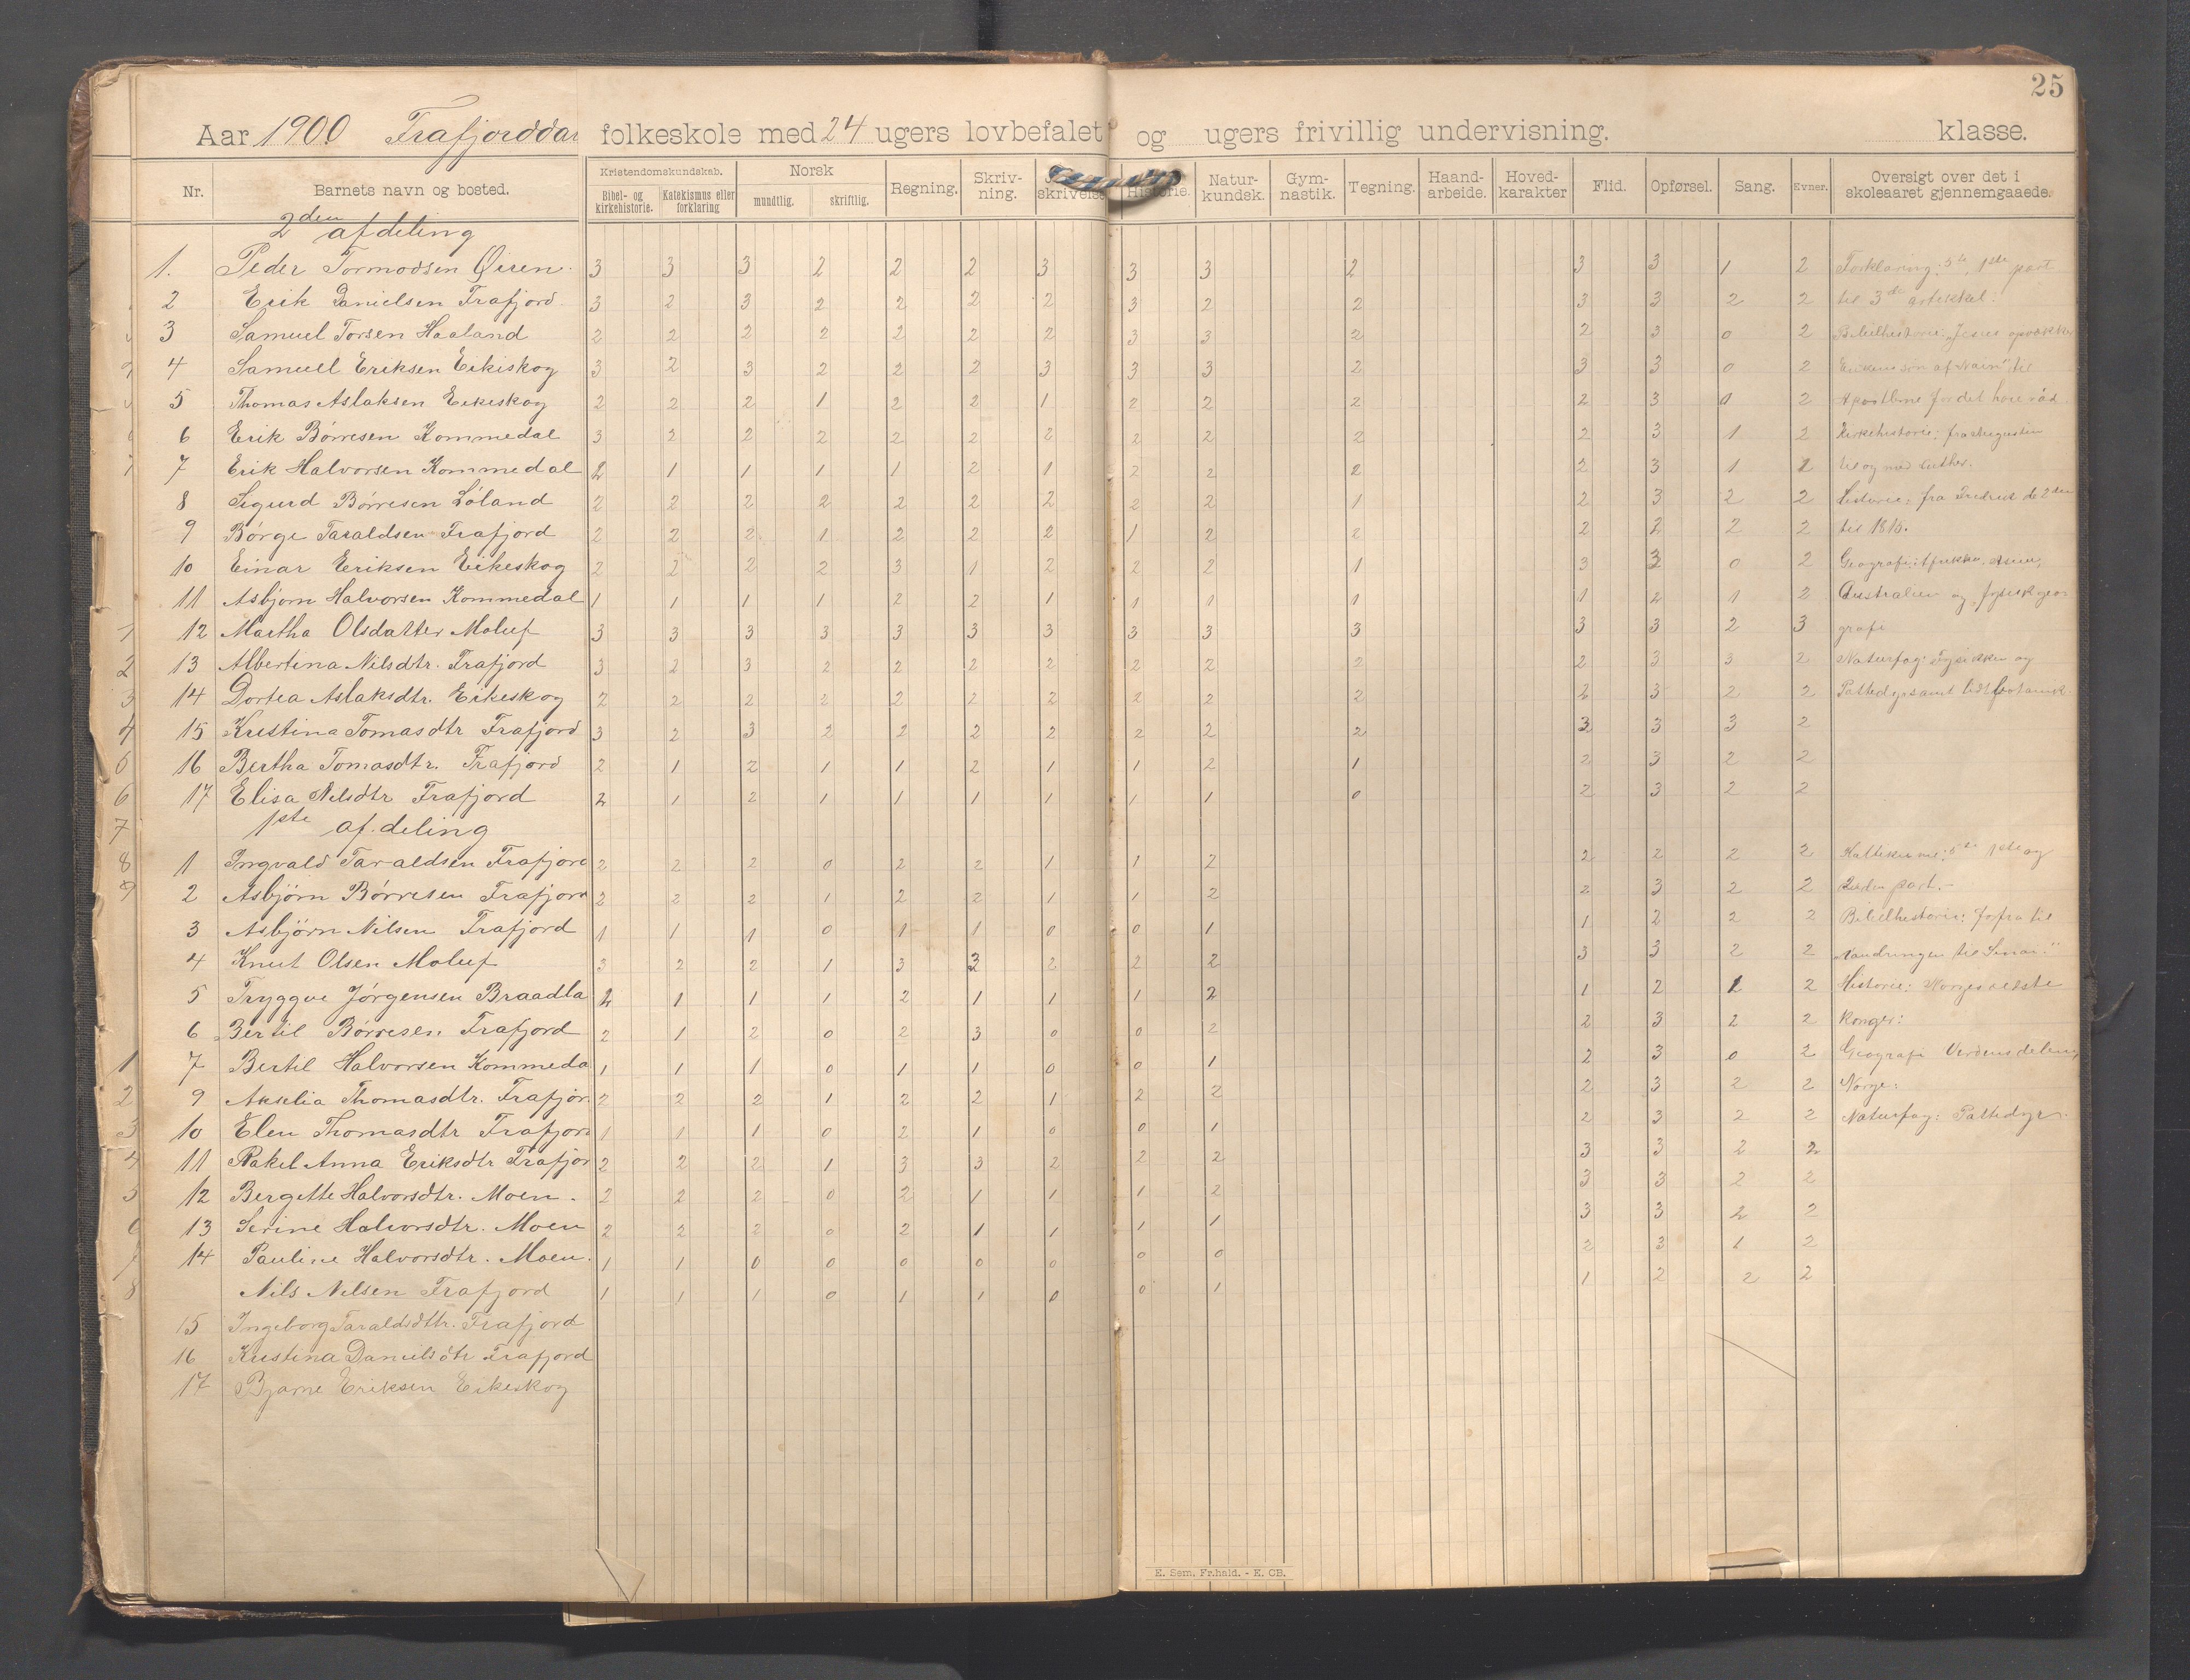 25
Aar 1900 Trafjorddal folkeskole med 24 ugers lovbefalet og ugers frivillig undervisning. klasse.
Nr. Barnets navn og bosted. Kristendomskundskab. Bibel- og kirkehistorie. Katekismus eller forklaring Norsk mundtlig. skriftlig. Regning. Skriv-ning. skrivelse Historie. Natur-kundsk. Gym-nastik. Tegning. Haand-arbeide. Hoved-karakter Flid. Opførsel. Sang. Evner. Oversigt over det i skoleaaret gjennemgaaede.
2den afdeling
1. Peder Tormodsen Øiren. 3 3 3 2 2 2 3 3 3 2 3 3 1 2 Forklaring: 1ste part
2 Erik Danielsen Trafjord. 3 2 3 2 2 2 2 3 2 2 3 3 2 2 til 3die artikkel:
3 Samuel Torsen Haaland 2 2 2 2 2 2 2 3 3 2 2 3 0 2 Bibelhistorie: Jesus opvækker
4 Samuel Eriksen Eikiskog 3 2 3 2 2 2 3 3 3 2 3 3 0 2 Enkens søn af Nain" til
5 Thomas Aslaksen Eikeskog 2 2 2 1 2 2 1 2 2 2 2 3 0 2 Apostlene for det høie råd
6 Erik Børresen Kommedal 3 2 2 2 2 2 2 2 2 2 2 3 1 2 Kirkehistorie: fra Augustin
7 Erik Halvorsen Kommedal 2 1 1 1 1 2 1 2 2 2 2 3 1 2 til og med Luther.
8 Sigurd Børresen Løland 2 2 2 2 2 2 2 2 2 1 2 3 2 2 Historie: fra Fredrik de 2den
9 Børge Taraldsen Trafjord 2 2 2 1 2 2 2 1 2 2 2 2 2 2 til 1815.
10 Einar Eriksen Eikeskog 2 2 2 2 3 1 2 2 2 1 3 3 0 2 Geografi: Afrikka, Asien,
11 Asbjørn Halvorsen Kommedal 1 1 1 1 2 2 1 1 1 1 1 2 1 2 Australien og fysisk geo-
12 Martha Olsdatter Moluf 3 3 3 3 3 3 3 3 3 3 3 3 2 3 grafi
13 Albertina Nilsdtr. Trafjord 3 2 3 2 2 2 2 2 2 2 2 3 3 2 Naturfag: Fysikken og
14 Dortea Aslaksdtr. Eikeskog 2 2 2 2 2 2 2 2 2 2 2 3 2 2 Pattedyr samt lidt botanik.
15 Kristina Tomasdtr Trafjord 3 2 3 2 2 2 2 2 2 2 3 3 3 2
16 Bertha Tomasdtr. Trafjord 2 1 2 1 1 2 1 1 2 1 2 3 2 2
17 Elisa Nilsdtr Trafjord 2 1 2 1 1 1 1 1 1 0 2 3 2 2
1ste afdeling
1 Ingvald Taraldsen Trafjord 2 2 2 0 2 2 1 1 2 2 2 2 2 1ste og
2 Asbjörn Børresen Trafjord 2 2 2 1 2 2 1 1 2 2 3 2 2 2den part.-
3 Asbjörn Nilsen Trafjord 1 1 1 0 1 1 0 0 1 1 2 2 2 Bibelhistorie: forfra til
4 Knut Olsen Moluf 3 2 2 1 3 3 2 2 2 3 3 2 2 "Vandringen til Sinai."
5 Tryggve Jörgensen Braadla 2 1 1 1 2 1 1 1 2 1 2 1 2 Historie: Norges ældste
6 Bertil Börresen Trafjord 2 1 2 0 2 3 0 0 2 2 3 2 2 Konger:
7 Bertil Halvorsen Kommeda 1 1 1 0 1 1 0 0 1 2 3 0 2 Geografi Verdensdelene
9 Akselia Thomasdtr. Trafjor 2 2 2 1 2 2 1 2 2 2 3 2 2 Norge:
10 Elen Thomasdtr Trafjord 1 1 1 0 2 1 0 0 1 2 3 2 2 Naturfag: Pattedyr.
11 Rakel Anna Eriksdtr Trafjor 2 2 2 1 3 3 2 2 2 3 3 2 2
12 Bergitte Halvorsdtr. Moen. 2 2 2 0 2 1 1 1 2 3 3 2 2
13 Serine Halvorsdtr. Moen 2 2 2 0 2 1 1 1 1 3 3 2 2
14 Pauline Halvorsdtr. Moen. 1 1 0 0 0 0 0 0 0 2 3 1 2
Nils Nilsen Trafjord 1 1 1 0 1 1 0 0 1 1 2 2 2
15 Ingeborg Taraldsdtr. Trafjord
16 Kristina Danielsdtr Trafjord
17 Bjarne Eriksen Eikeskog
E. Sem. Fr.hald. - E. CB.